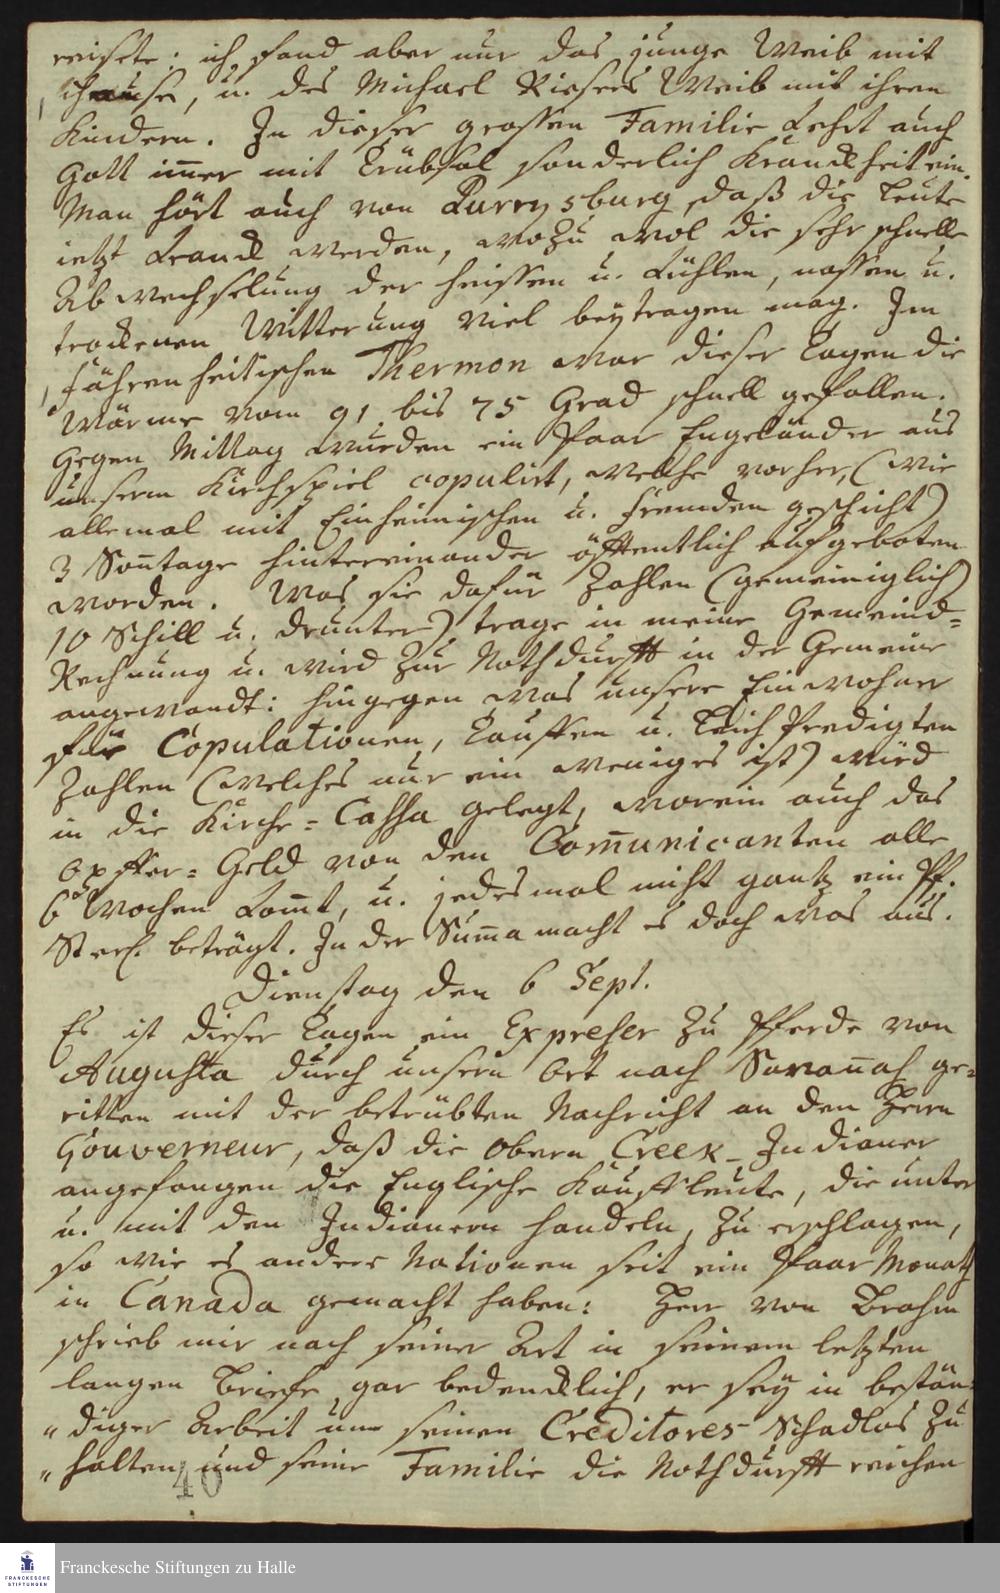 reisete: ich fand aber nur das junge Weib mit
zu Hause, u. des Michael Riesers Weib mit ihren
Kindern. In dieser grossen Familie kehrt auch
Gott im̄er mit Trübsal sonderlich Kranckheit ein.
Man hört auch von Purrysburg, daß die Leute
ietzt kranck werden, wozu wol die sehr schnelle
Abwechselung der heissen u. kühlen, nassen u.
trockenen Witterung viel beytragen mag. Im
Fährenheitischen Thermom war dieser Tagen die
Wärme vom 91 bis 75 Grad schnell gefallen.
Gegen Mittag wurden ein Paar Engeländer aus
unserm Kirchspiel copulirt, welche vorher, (wie
allemal mit Einheimischen u. Fremden geschicht)
3 Son̄tage hintereinander öffentlich aufgeboten
worden. Was sie dafür zahlen (gemeiniglich
10 Schill u. drunter) trage in meine Gemeind=
Rechnung u. wird zur Nothdurfft in der Gemeine
angewandt: hingegen was unsere Einwohner
für Copulationen, Tauffen u. Leich Predigten
zahlen (welches nur ein weniges ist) wird
in die Kirche=Cassa gelegt, worein auch das
Opffer=Geld von den Com̄unicanten alle
6 Wochen kom̄t, u. jedesmal nicht gantz ein Pf.
Sterl. beträgt. In der Sum̄a macht es doch was aus.
Dienstag den 6 Sept.
Es ist dieser Tagen ein Expresser zu Pferde von
Augusta durch unsern Ort nach Savan̄ah ge=
ritten mit der betrübten Nachricht an den Herrn
Gouverneur, daß die obern Creek-Indianer
angefangen die Englische Kauffleute, die unter
u. mit den Indianern handeln, zu erschlagen,
so wie es andere Nationen seit ein Paar Monath
in Canada gemacht haben: Herr von Brahm
schrieb mir nach seiner Art in seinem letzten
langen Briefe gar bedencklich, er sey in bestän=
„ diger Arbeit um seinen Creditores Schadlos zu
„ halten und seine Familie die Nothdurfft reichen
40
Franckesche Stiftungen zu Halle
FRANCKESCHE
STIFTUNGEN